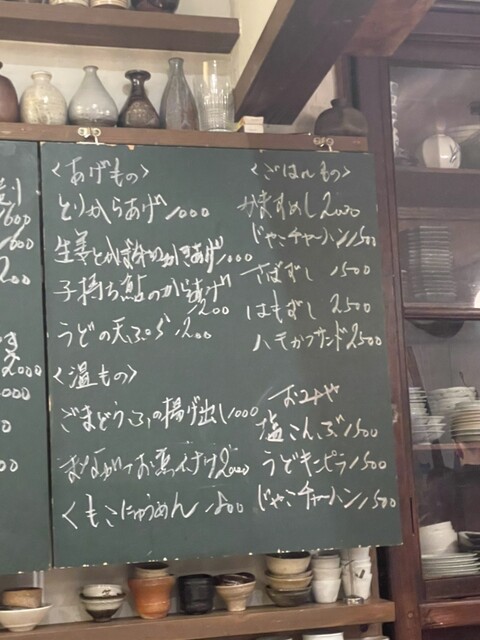 600
600
200
2000
000
0
0
<あげもの>
とりからあげ 1000
生姜と かきあげ 1000
子持ち鮎のから揚げ
1200
うどの天ぷら 1200
<温もの>
ごまどうふの揚げ出し 1000
2000
くもこにゅうめん 1800
<ごはんもの>
かますめし 2000
じゃこチャーハン 1500
さばずし 1500
はもずし 2500
ハモかつサンド 2500
おみや
塩こんぶ 1500
うどキンピラ 1500
じゃこチャーハン 1500